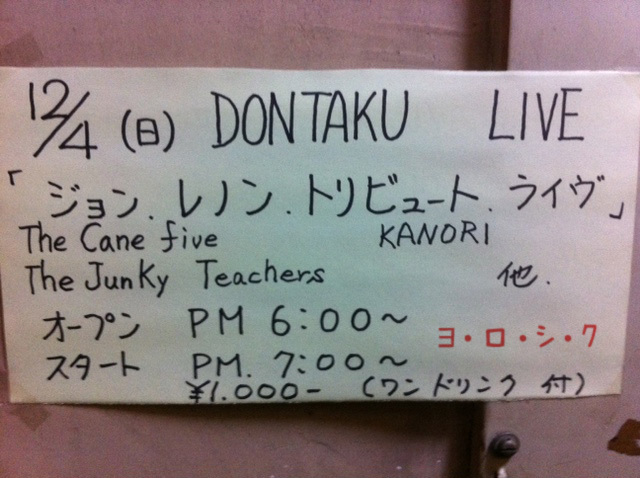 12/4(日) DONTAKU LIVE
「ジョン.レノン.トリビュート.ライヴ」
The Cane five KANORI
The Junky Teachers 他.
オープン PM 6:00〜
ヨ・ロ・シ・ク
スタート PM. 7:00〜
¥1.000- (ワンドリンク付)